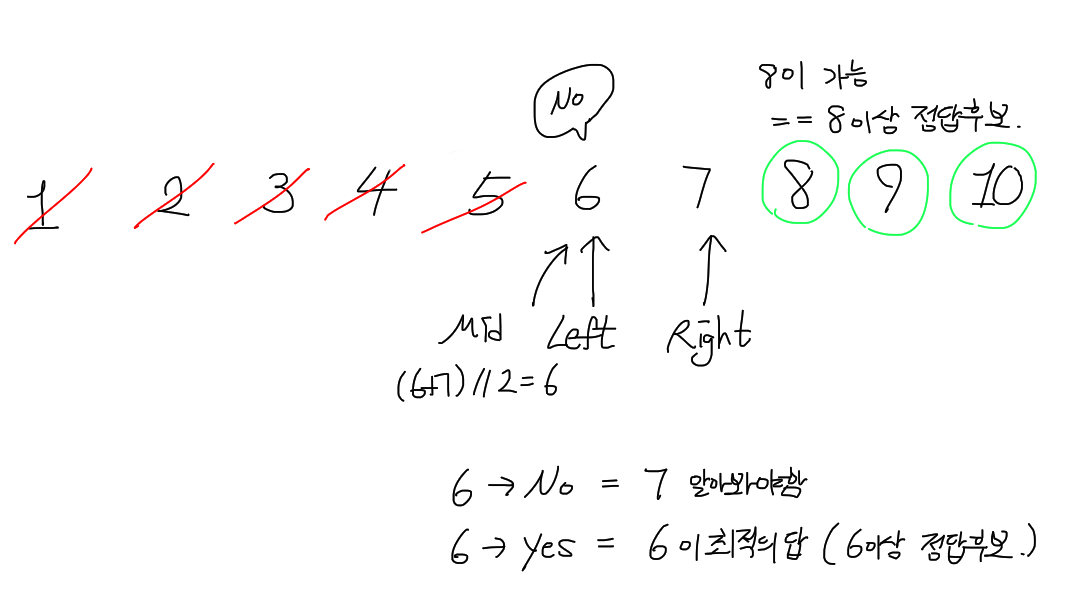 No
8이 가능
== 8이상 정답후보.
1 2 3 4 5 6 7 8 9 10
Mid Left Right
(6+7)//2=6
6 → No = 7 알아봐야함
6 → Yes = 6이 최적의 답 (6이상 정답후보.)